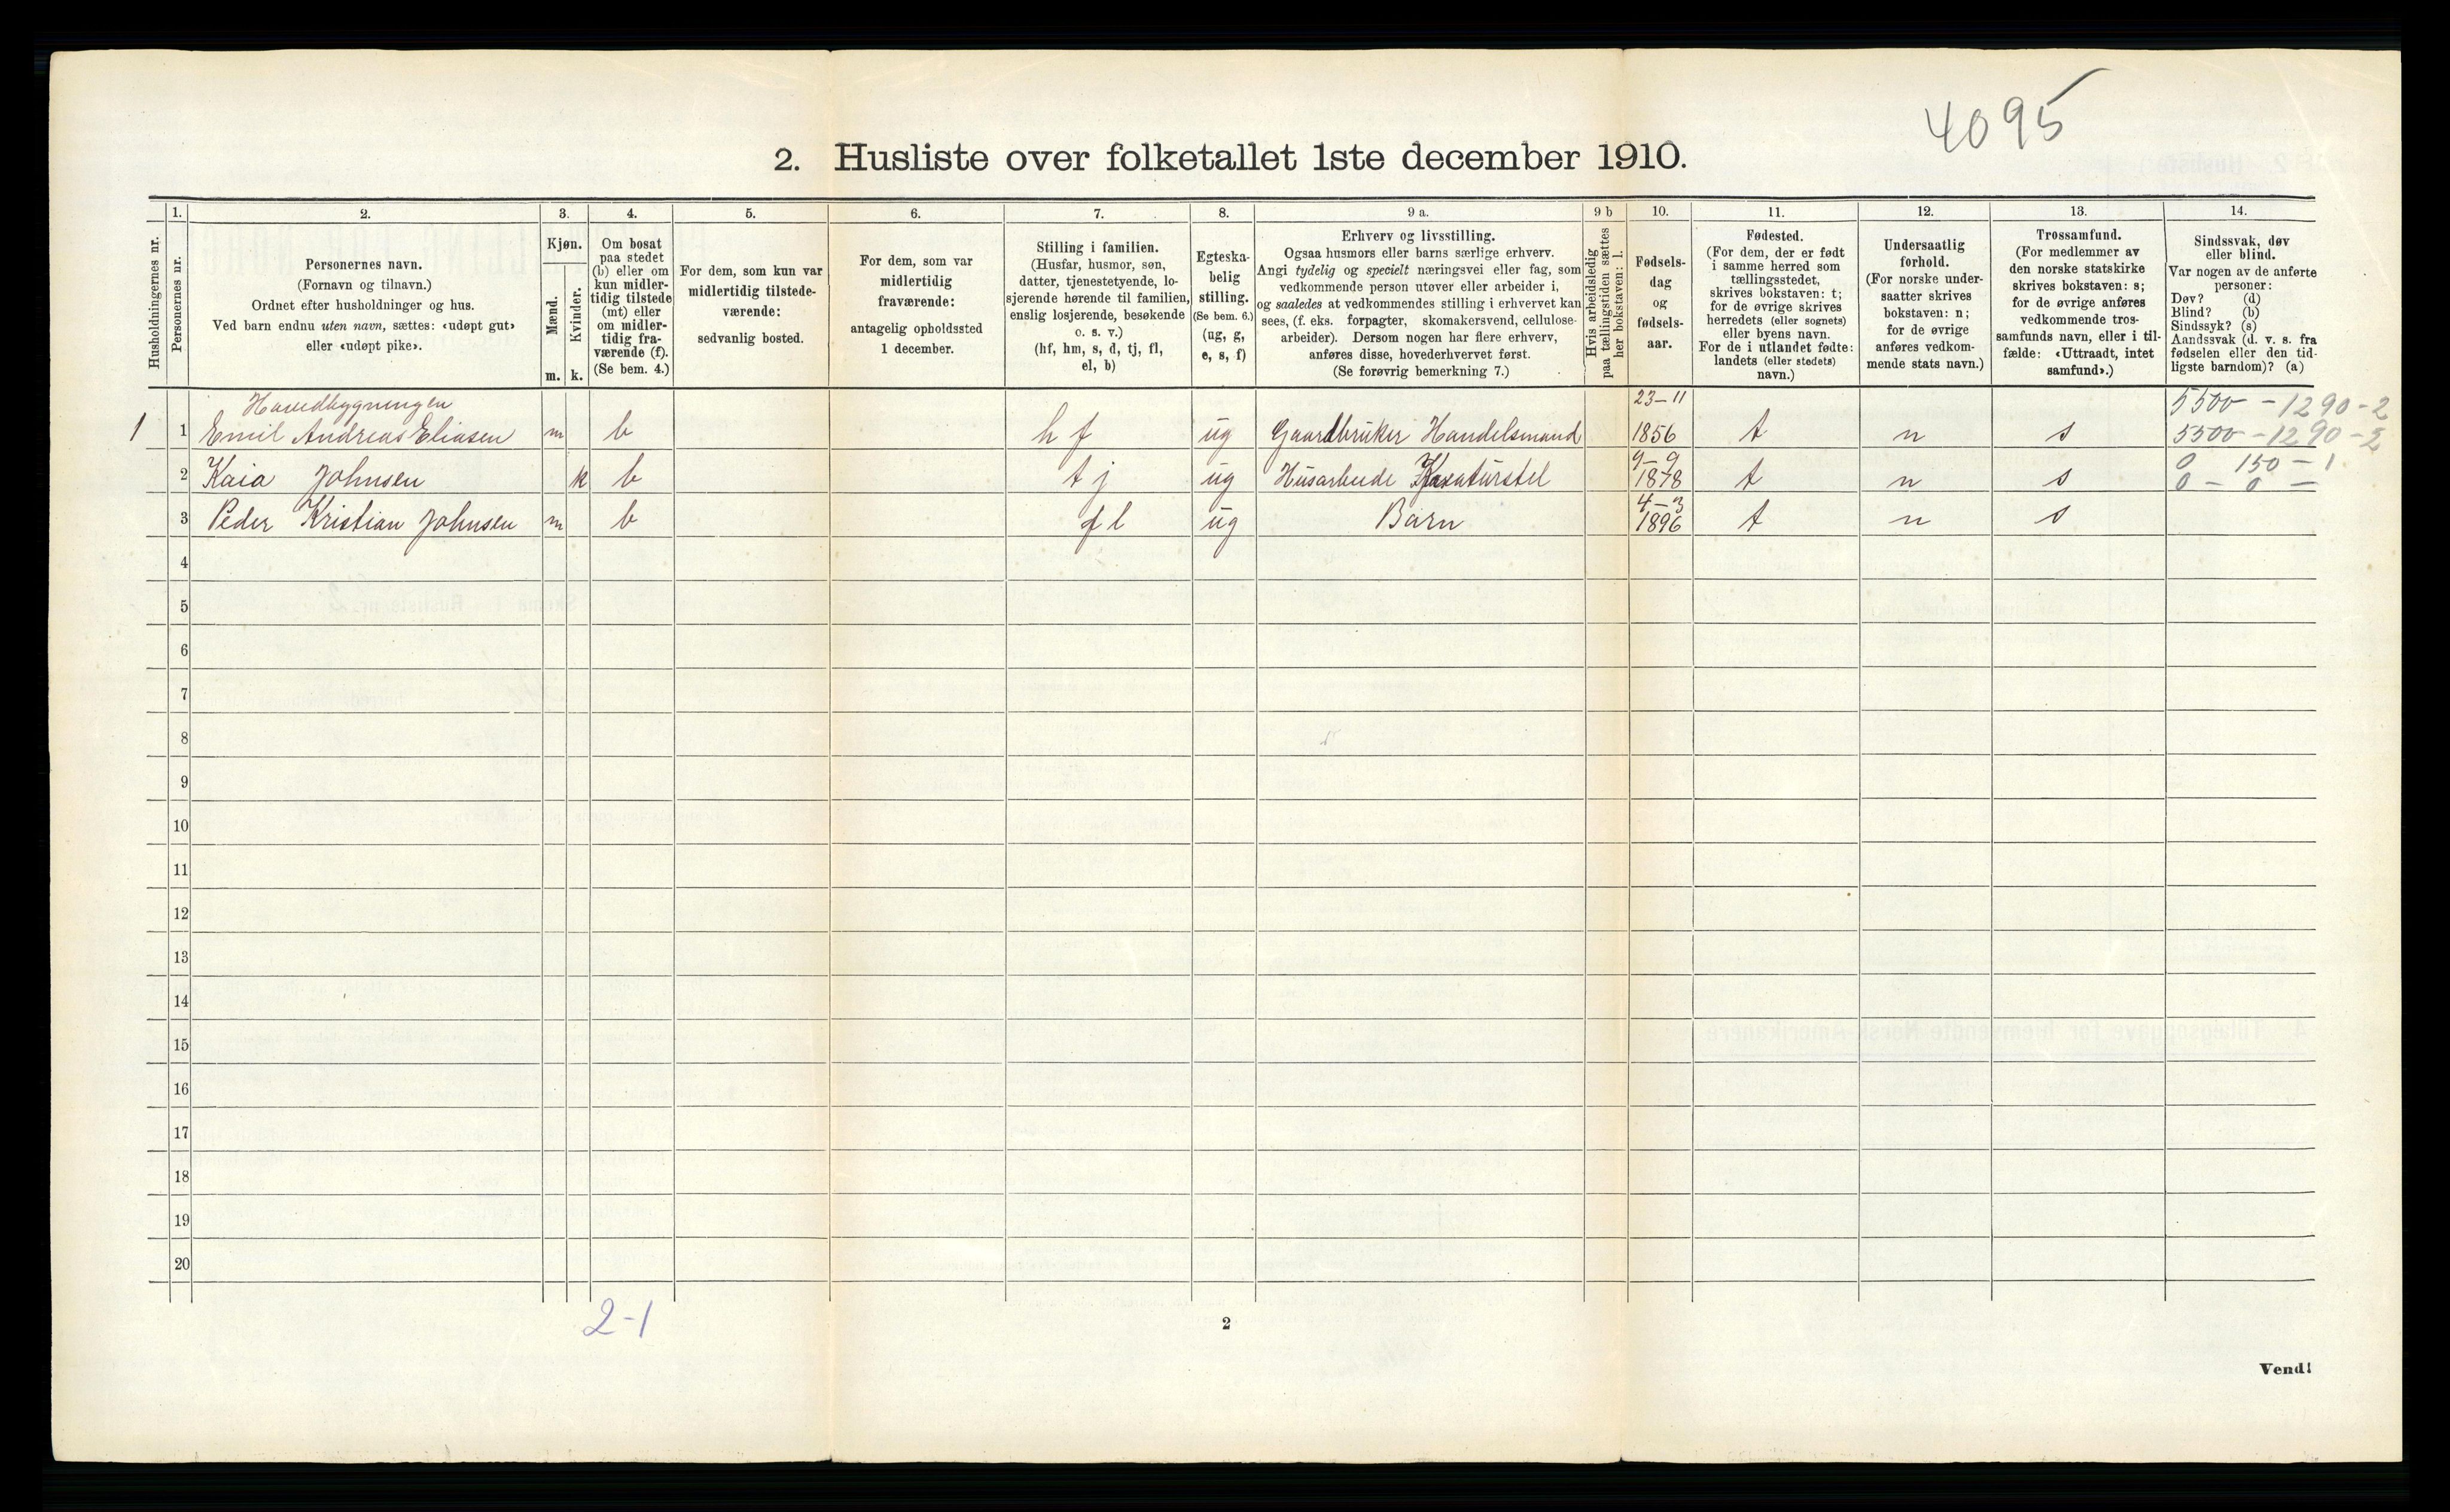 4095
2. Husliste over folketallet 1ste december 1910.
Husholdningernes nr.
1.
Personernes nr.
2.
Personernes navn.
(Fornavn og tilnavn.)
Ordnet efter husholdninger og hus.
Ved barn endnu uten navn, sættes: «udøpt gut»
eller «udøpt pike».
3.
Kjøn.
Mænd.
Kvinder.
m.
k.
4.
Om bosat
paa stedet
(b) eller om
kun midler-
tidig tilstede
(mt) eller
om midler-
tidig fra-
værende (f).
(Se bem. 4.)
5.
For dem, som kun var
midlertidig tilstede-
værende:
sedvanlig bosted.
6.
For dem, som var
midlertidig
fraværende:
antagelig opholdssted
1 december.
7.
Stilling i familien.
(Husfar, husmor, søn,
datter, tjenestetyende, lo-
sjerende hørende til familien,
enslig losjerende, besøkende
o. s. v.)
(hf, hm, s, d, tj, fl,
el, b)
8.
Egteska-
belig
stilling.
(Se bem. 6.)
(ug, g,
e, s, f)
9 a.
Erhverv og livsstilling.
Ogsaa husmors eller barns særlige erhverv.
Angi tydelig og specielt næringsvei eller fag, som
vedkommende person utøver eller arbeider i,
og saaledes at vedkommendes stilling i erhvervet kan
sees, (f. eks. forpagter, skomakersvend, cellulose-
arbeider). Dersom nogen har flere erhverv,
anføres disse, hovederhvervet først.
(Se forøvrig bemerkning 7.)
9 b
Hvis arbeidsledig
paa tællingstiden sættes
her bokstaven: l.
10.
Fødsels-
dag
og
fødsels-
aar.
11.
Fødested.
(For dem, der er født
i samme herred som
tællingsstedet,
skrives bokstaven: t;
for de øvrige skrives
herredets (eller sognets)
eller byens navn.
For de i utlandet fødte:
landets (eller stedets)
navn.)
12.
Undersaatlig
forhold.
(For norske under-
saatter skrives
bokstaven: n;
for de øvrige
anføres vedkom-
mende stats navn.)
13.
Trossamfund.
(For medlemmer av
den norske statskirke
skrives bokstaven: s;
for de øvrige anføres
vedkommende tros-
samfunds navn, eller i til-
fælde: «Uttraadt, intet
samfund».)
14.
Sindssvak, døv
eller blind.
Var nogen av de anførte
personer:
Døv? (d)
Blind? (b)
Sindssyk? (s)
Aandssvak (d. v. s. fra
fødselen eller den tid-
ligste barndom)? (a)
Hovedbygningen 23-11 5500 - 1290 - 2
1 1 Emil Andreas Eliasen m b hf ug Gaardbruker Handelsmand 1856 t n s 5500 - 1290 - 2
9-9 0 150 - 1
2 Kaia Johnsen k b tj ug Husarbeide 1878 t n s 0 - 0 -
4-3
3 Peder Kristian Johnsen m b fl ug Barn 1896 t n s
4
5
6
7
8
9
10
11
12
13
14
15
16
17
18
19
20
2-1
2
Vend!